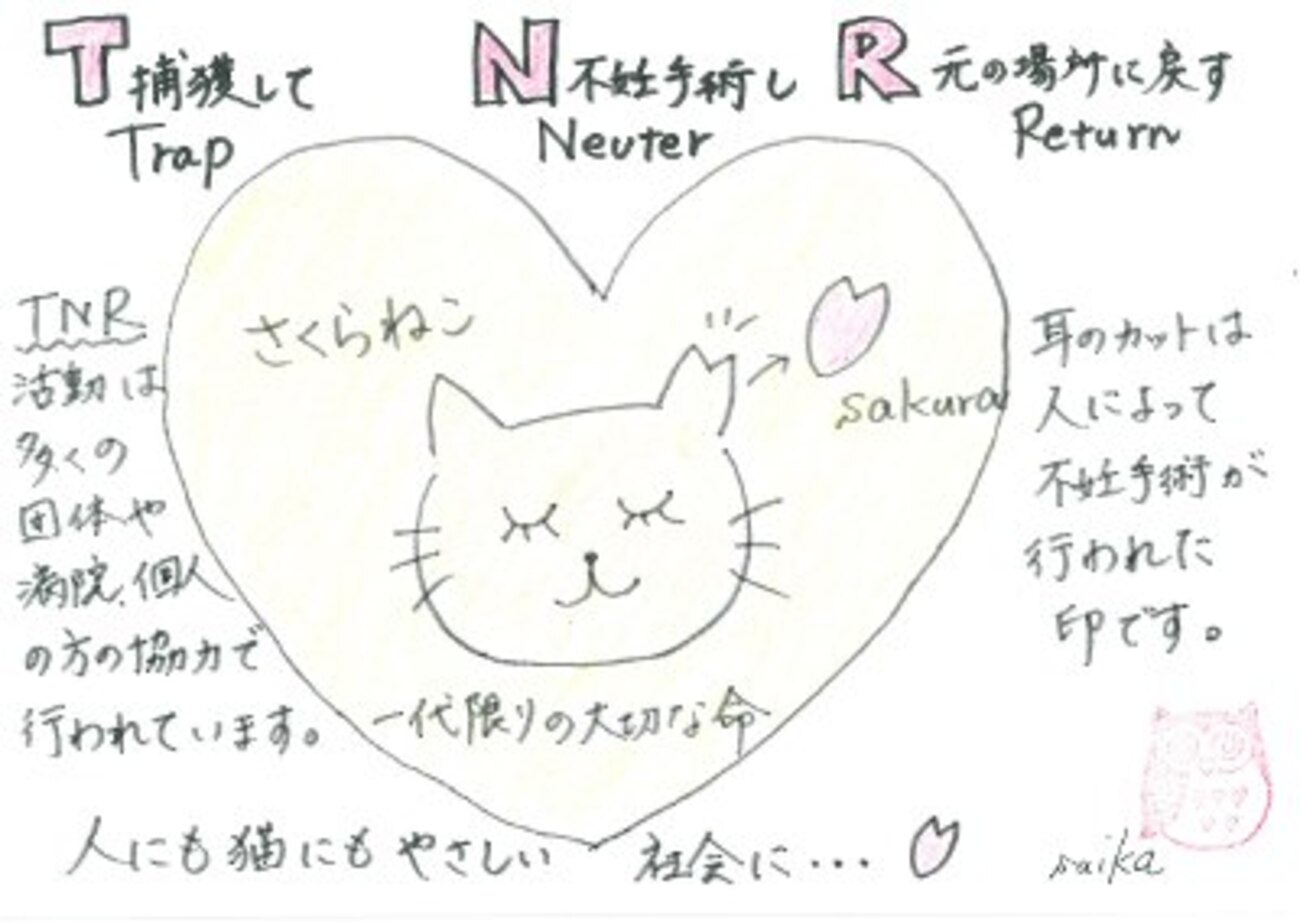 T 捕獲して
Trap
N 不妊手術し
Neuter
R 元の場所に戻す
Return
TNR
活動は
多くの
団体や
病院、個人
の方の協力で
行われています。
さくらねこ
sakura
一代限りの大切な命
耳のカットは
人によって
不妊手術が
行われた
印です。
人にも猫にもやさしい 社会に・・・
saika